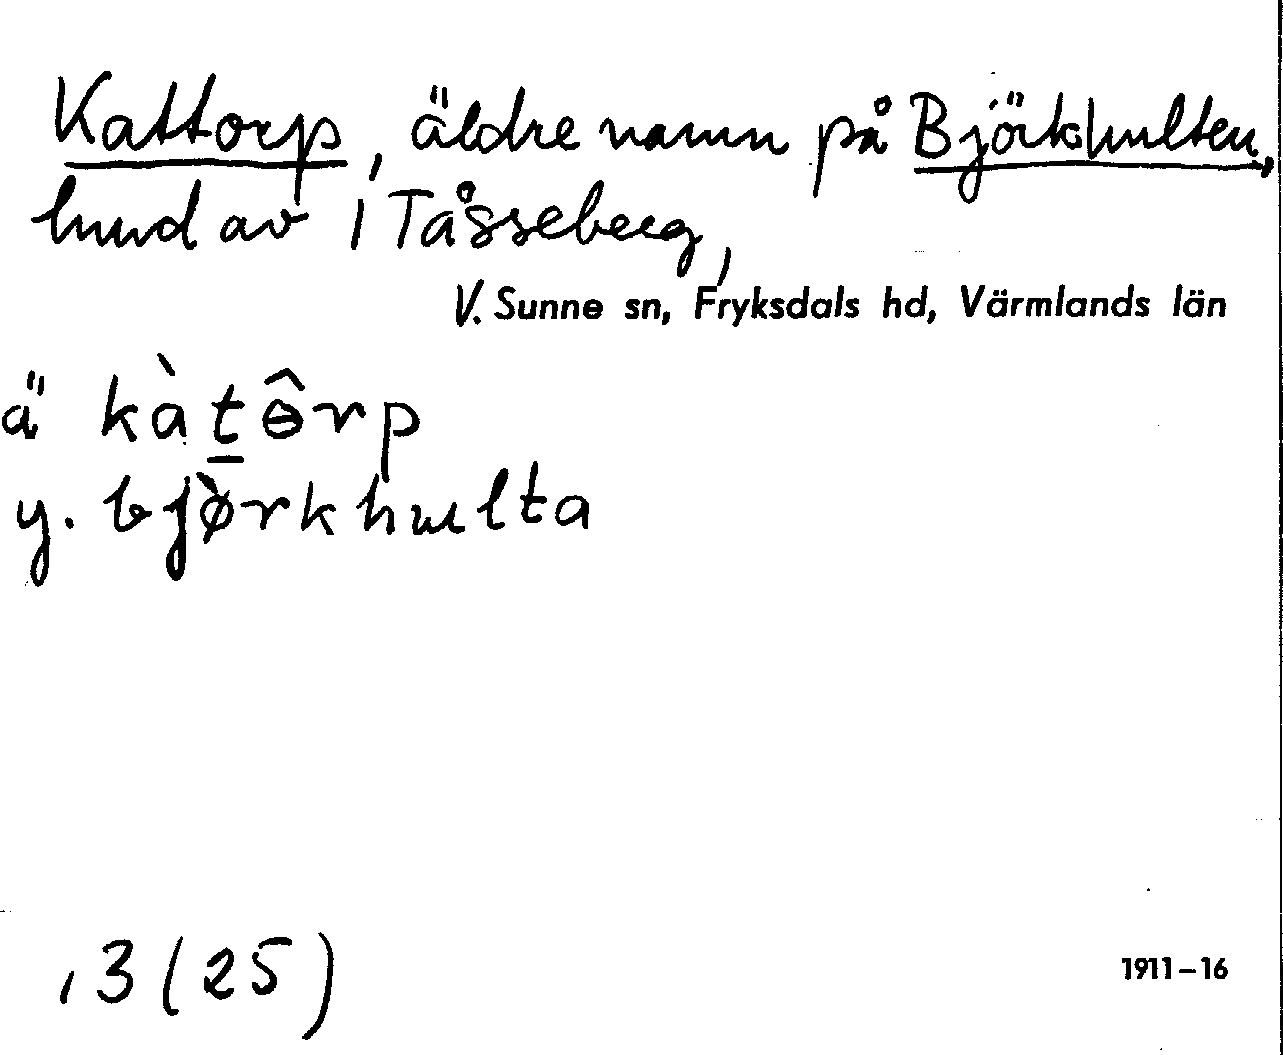 Kattorp, äldre namn på Björkhulten,
hmd av 1 Tåsseberg,
V. Sunne sn, Fryksdals hd, Värmlands län
ä kàt̲ɵ̂rp
y. bjø̀rkhulta
,3 (25)
1911–16